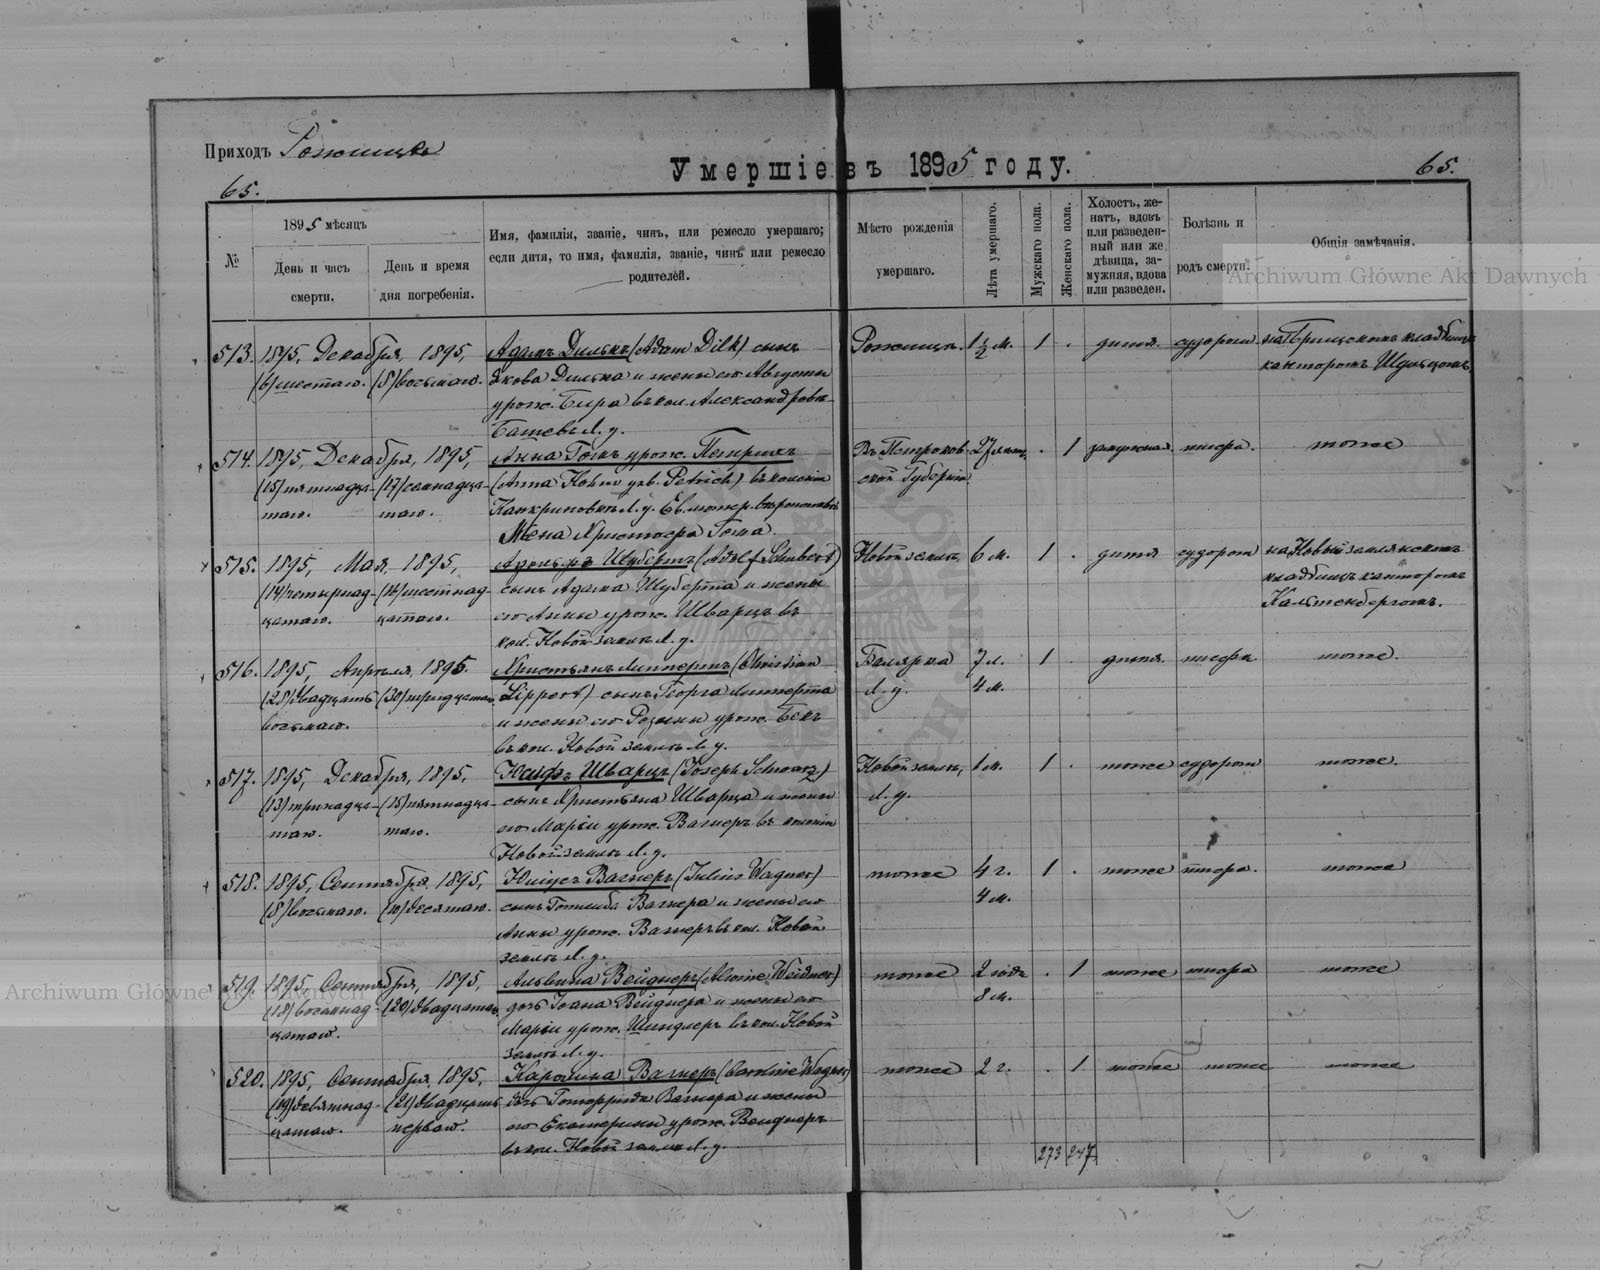 Приходъ Рожище
Умершіе въ 1895 году.
65.
65.
№
1895 мѣсяцъ
День и часъ смерти.
День и время дня погребенія.
Имя, фамилія, званіе, чинъ, или ремесло умершаго;
если дитя, то имя, фамилія, званіе, чинъ или ремесло
родителей.
Мѣсто рожденія
умершаго.
Лѣта умершаго.
Мужскаго пола.
Женскаго пола.
Холостъ, же-
натъ, вдовъ
или разведен-
ный или же
дѣвица, за-
мужняя, вдова
или разведен.
Болѣзнь и
родъ смерти.
Общія замѣчанія.
Archiwum Główne Akt Dawnych
513. 1895, Декабря, 1895, Адамъ Дилькъ (Adam Dilk) сынъ Рожище. 1½ м. 1 . дитя. судороги на кладбищѣ
(6) шестаго. (8) восьмаго. Якова Дилька и жены его Августы канторомъ
урож. Бира въ кол. Александровк-
Л. у.
514. 1895, Декабря, 1895, Анна Гомъ урож. Петрихъ Въ Петроков- 27 лѣтъ . 1 замужняя тоже
(15) пятнадца- (17) семнадца- (Anna Hohm geb. Petrich) въ колоніи ской Губерніи
таго. таго. Л. у.
Жена Христофа Гома.
515. 1895, Мая, 1895, Адольфъ Шубертъ (Adolf Schubert) Новой землѣ, 6 м. 1 . дитя судороги
(14) четырнад- (16) шестнад- сынъ Адама Шуберта и жены кладбищѣ канторомъ
цатаго. цатаго. его Анны урож. Шварцъ въ Кальтенбергомъ.
кол. Новой землѣ Л. у.
516. 1895, Апрѣля, 1895 Христьянъ Липпертъ (Christian Боярка 7 л. 1 . дитя. тоже.
(28) двадцать (30) тридцатаго. Lippert) сынъ Георга Липперта Л. у. 4 м.
восьмаго. и жены его Розины урож. Бекъ
въ кол. Новой землѣ Л. у.
517. 1895, Декабря, 1895, Іосифъ Шварцъ (Joseph Schwarz) Новой землѣ, 1 м. 1 . тоже судороги тоже.
(13) тринадца- (15) пятнадца- сынъ Христьяна Шварца и жены Л. у.
таго. таго. его Маріи урож. Вагнеръ въ колоніи
Новой землѣ Л. у.
518. 1895, Сентября, 1895, Юліусъ Вагнеръ (Julius Wagner) тоже 4 г. 1 . тоже тоже
(8) восьмаго. (10) десятаго. сынъ Готлиба Вагнера и жены его 4 м.
Анны урож. Вагнеръ въ кол. Новой
землѣ Л. у.
519. 1895, Сентября, 1895, Альвина Вейднеръ (Alwine Weidner) тоже 2 года . 1 тоже тоже
(18) восемнад- (20) двадцатаго. дочь Іоана Вейднера и жены его 8 м.
цатаго. Маріи урож. Шиндлеръ въ кол. Новой
землѣ Л. у.
Archiwum Główne Akt Dawnych
520. 1895, Сентября, 1895, Каролина Вагнеръ (Caroline Wagner) тоже 2 г. . 1 тоже тоже тоже
(19) девятнад- (21) двадцать дочь Готфрида Вагнера и жены
цатаго. перваго. его Екатерины урож. Вейднеръ
въ кол. Новой землѣ Л. у.
273 247